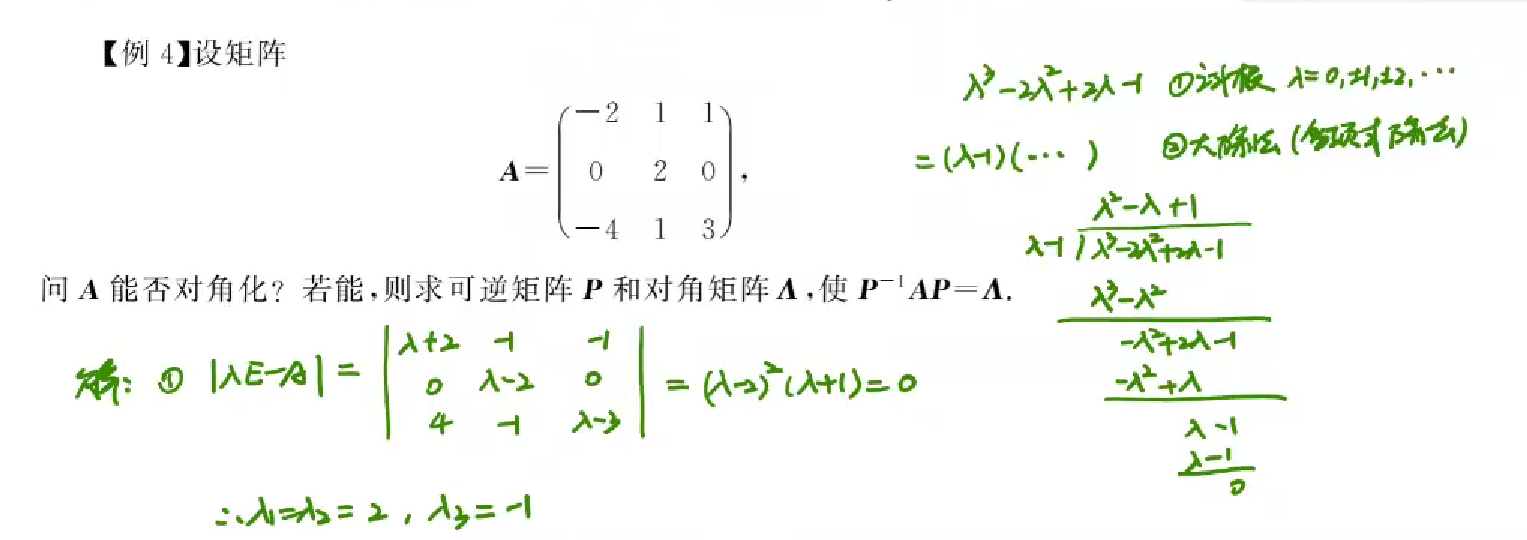 【例 4】设矩阵
A=
-2 1 1
0 2 0
-4 1 3
,
问 A 能否对角化? 若能,则求可逆矩阵 P 和对角矩阵 Λ,使 P⁻¹AP=Λ.
解: ① |λE-A| =
λ+2 -1 -1
0 λ-2 0
4 -1 λ-3
= (λ-2)²(λ+1)=0
∴λ₁=λ₂=2, λ₃=-1
λ³-2λ²+2λ-1 ①试根 λ=0,±1,±2,…
=(λ-1)(…) ②大除法(多项式除法)
λ²-λ+1
λ-1 ) λ³-2λ²+2λ-1
λ³-λ²
-λ²+2λ-1
-λ²+λ
λ-1
λ-1
0